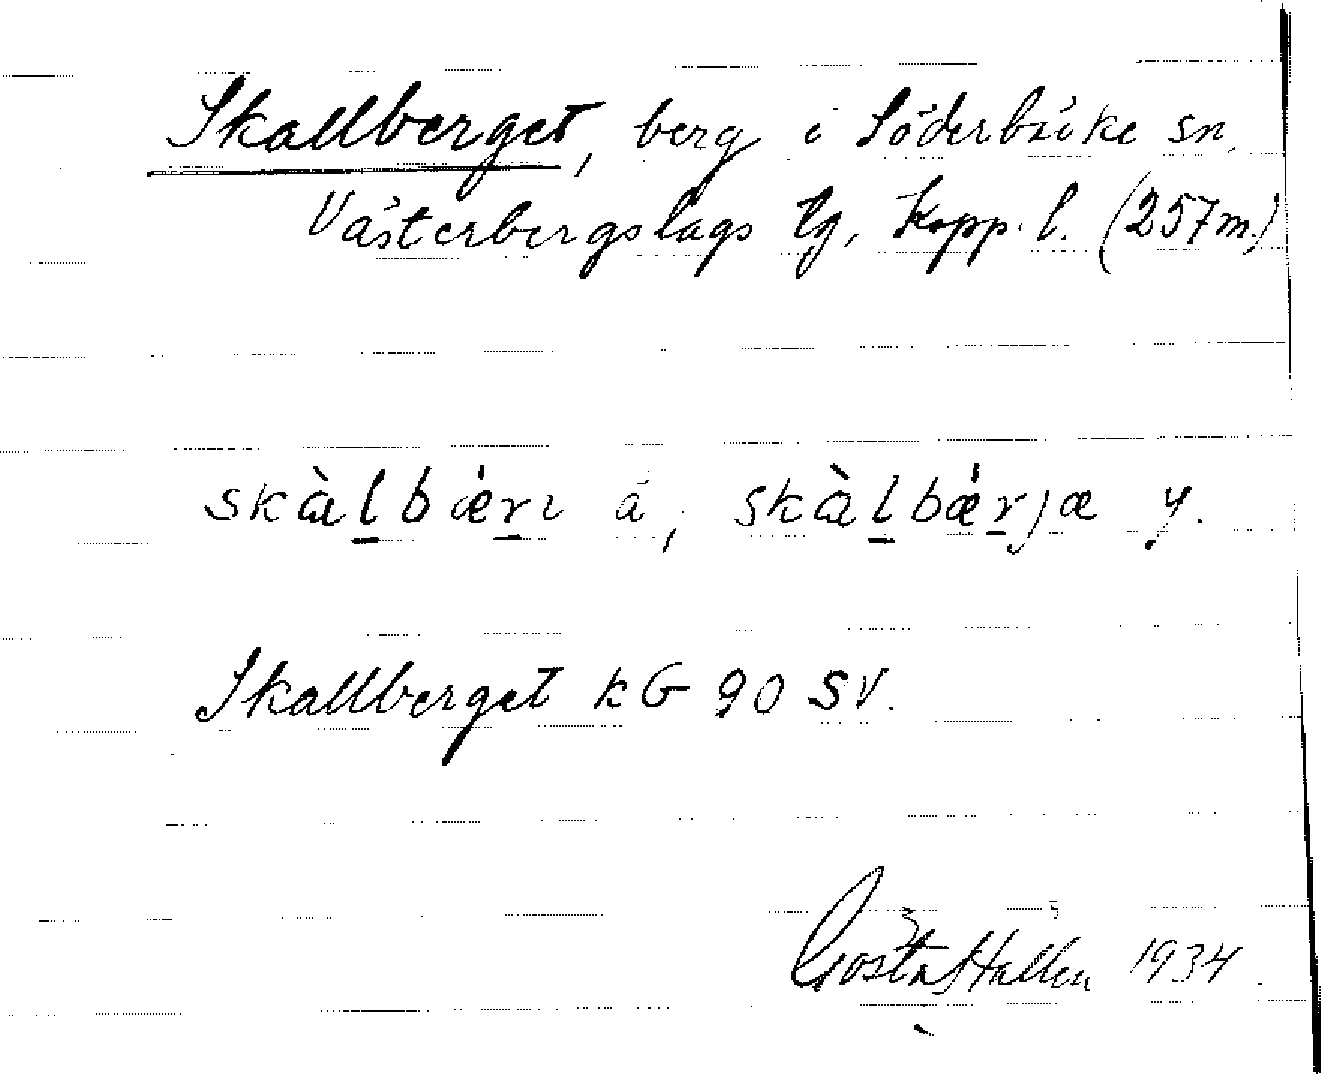 Skallberget, berg i Söderbärke sn,
Västerbergslags tg, Kopp. l. (257 m.)
skàl̲bær̲ı ä, skàl̲bær̲jæ y.
Skallberget kG 90 SV.
Gösta Hallén 1934